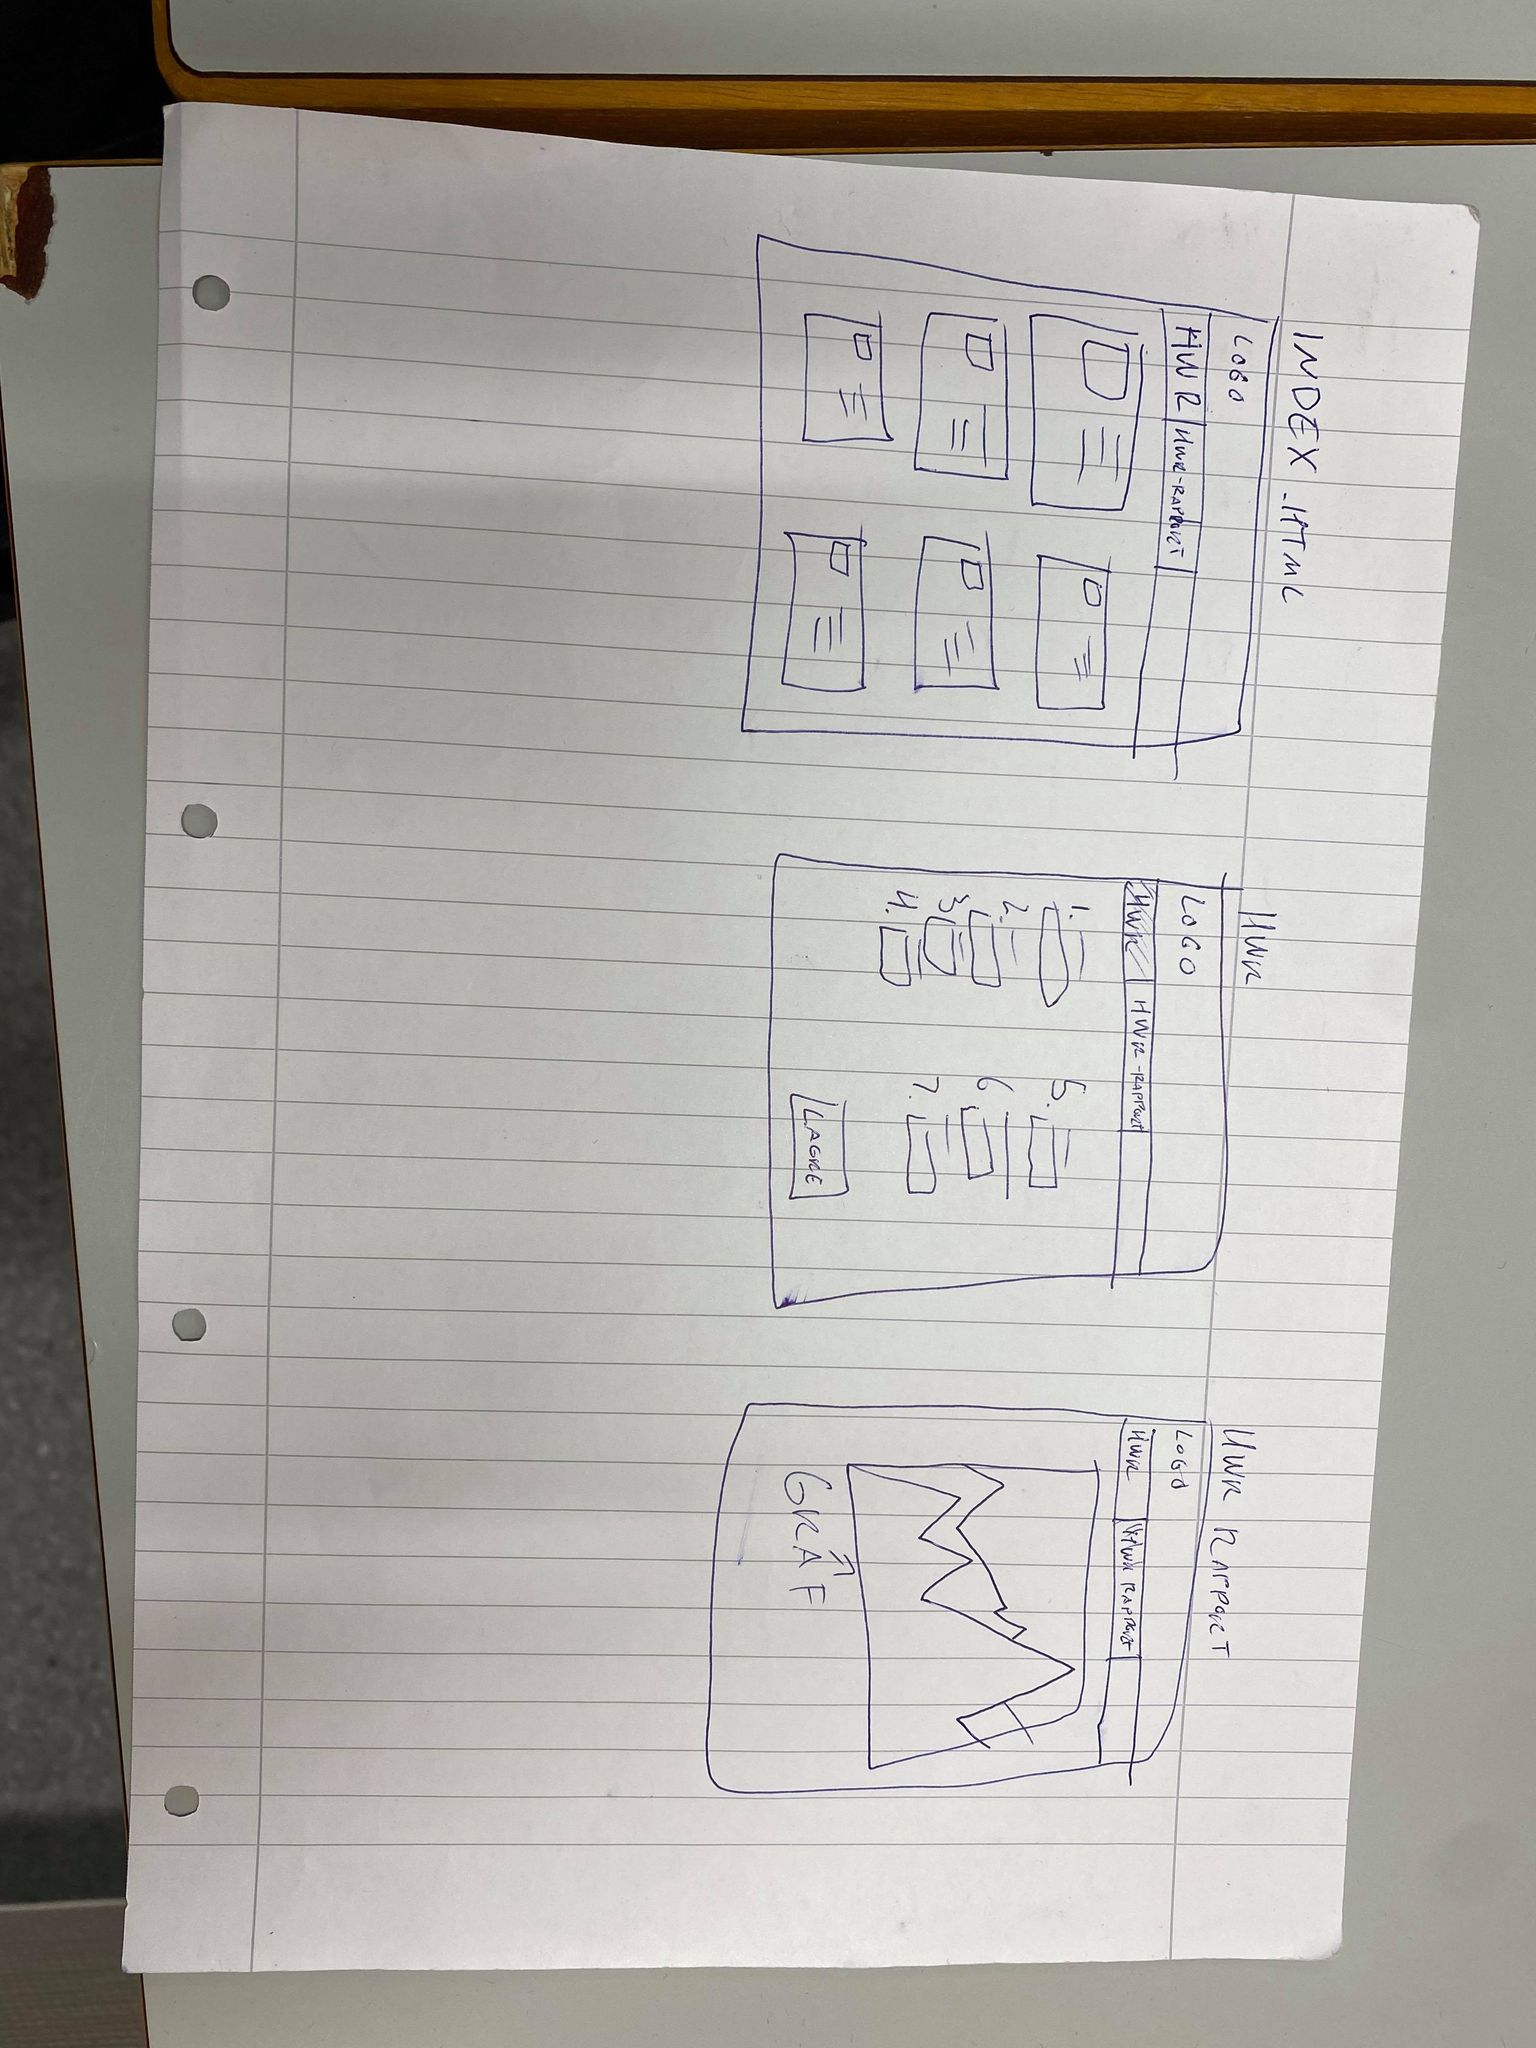 INDEX.HTML
LOGO
HWR HWR-RAPPORT
HWR
LOGO
HWR HWR-RAPPORT
1.
2.
3.
4.
5.
6
7.
LAGRE
HWR RAPPORT
LOGO
HWR HWR RAPPORT
GRAF